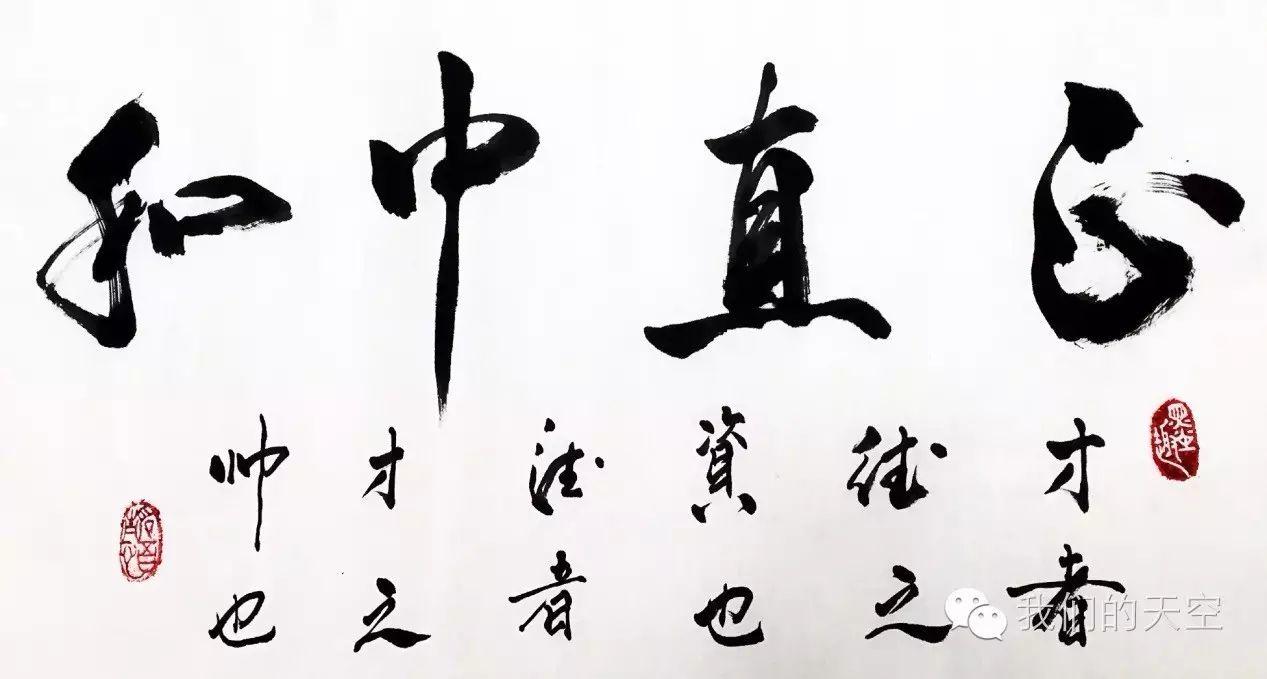 正直中和
才者
德之
資也
德者
才之
帅也
我们的天空